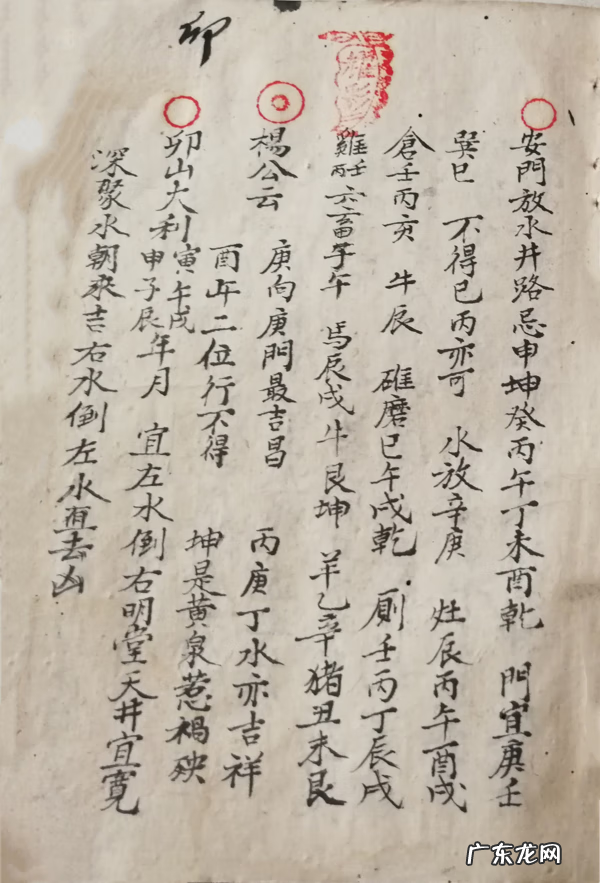 卯
安門放水井路忌申坤癸丙午丁未酉乾　門宜庚壬
巽巳　不得已丙亦可　水放辛庚　灶辰丙午酉戌
倉壬丙亥　牛辰　碓磨巳午戌乾　厠壬丙丁辰戌
雞壬丙六畜子午　馬辰戌牛艮坤　羊乙辛猪丑未艮
楊公云　庚向庚門最吉昌　丙庚丁水亦吉祥
酉午二位行不得　坤是黄泉惹禍殃
卯山大利寅午戌申子辰年月　宜左水倒右明堂天井宜寬
深聚水朝來吉右水倒左水直去凶
广东龙网